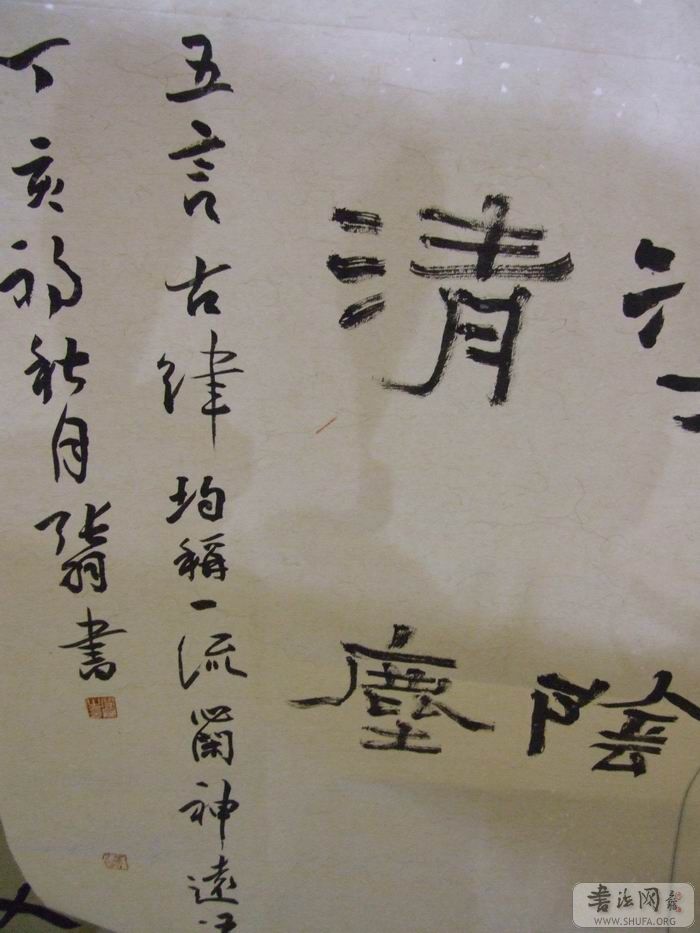 陰
清塵
五言古律均稱一流神遠
丁亥秋月書
書法网
WWW.SHUFA.ORG